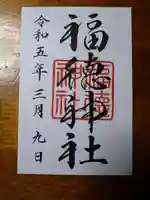 福徳神社
令和五年三月九日